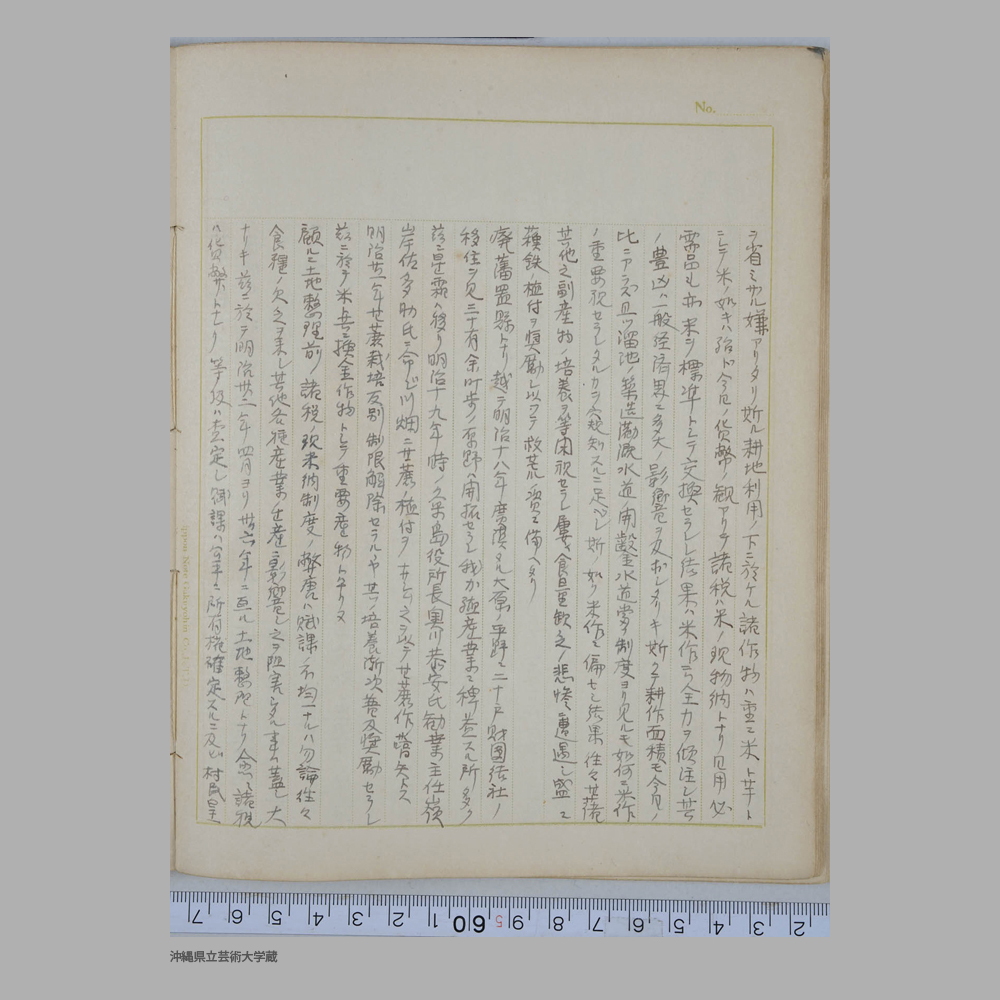 No.
ヲ省ミサル嫌アリタリ斯ル耕地利用ノ下ニ於ケル諸作物ハ重ニ米ト芋ト
ニシテ米ノ如キハ殆ト今日ノ貨幣ノ観アリテ諸税ハ米ノ現物納トナリ日用必
需品モ亦米ヲ標準トシテ交換セラレシ結果ハ米作ニ全力ヲ傾注シ其
ノ豊凶ハ一般経済界ニ多大ノ影響ヲ及ホシタリキ斯クテ耕作面積モ今日ノ
比ニアラズ且ツ溜池ノ築造灌漑水道ノ開鑿水道当制度ヨリ見ルモ如何ニ米作
ノ重要視セラレタルカヲ知スルニ足ベシ斯ノ如ク米作ニ偏セシ結果往々甘藷
其他之副産物ノ培養ヲ等閑視セラレ屡々食糧欠乏ノ悲惨ニ遭遇シ盛ニ
蘇鉄ノ植付ヲ奨励シ以ツテ救荒ノ資ニ備ヘタリ
廃藩置縣トナリ越テ明治十八年廣漠タル大原ノ平野ニ二十戸財團結社ノ
移住ヲ見ニ十有余町歩ノ原野ハ開拓セラレ我カ殖産業ニ稗益スル所多ク
茲ニ星霜ハ移リ明治十九年時ノ久米島役所長奥川恭安氏勧業主任嶺
岸佐多助氏ニ命シ川畑ニ甘蔗ノ植付ヲ 之ヲ以テ甘蔗作ノ嚆矢トス
明治廿一年甘蔗栽培反別制限解除セラルヤ其ノ培養漸次普及奨励セラレ
茲ニ於テ米ト共ニ換金作物トシテ重要産物トナリヌ
顧ルニ土地整理前ノ諸税ノ現米納制度ノ弊害ハ賦課ノ不均一ナルハ勿論往々
食糧ノ欠乏ヲ来シ其他各種産業ノ生産ニ影響シ之ヲ阻害シタル事蓋シ大
ナリキ茲ニ於テ明治卅二年四月ヨリ卅六年ニ亘ル土地整理トナリ愈々諸税
ハ貨幣トナリ等級ハ査定シ賦課ハ公平ニ所有権確定スルニ及ヒ村民皇
Nippon Note
沖縄県立芸術大学蔵
7 6 5 4 3 2 1 60 5 9 8 7 6 5 4 3 2